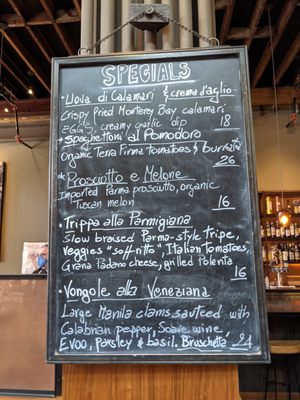 SPECIALS
• Uova di Calamari & crema d'aglio
Crispy Fried Monterey Bay calamari
EGGS, creamy garlic dip 18
• Spaghettoni al Pomodoro
Organic Terra Firma tomatoes & burrata
26
* Prosciutto e Melone
Imported Parma prosciutto, organic
Tuscan melon 16
• Trippa alla Parmigiana
Slow braised Parma-style tripe,
Veggies "soffritto", Italian Tomatoes,
Grana Padano cheese, grilled Polenta
16
• Vongole alla Veneziana
Large Manila clams sauteed with
Calabrian pepper, Soave wine,
Evoo, Parsley & basil. Bruschetta 24